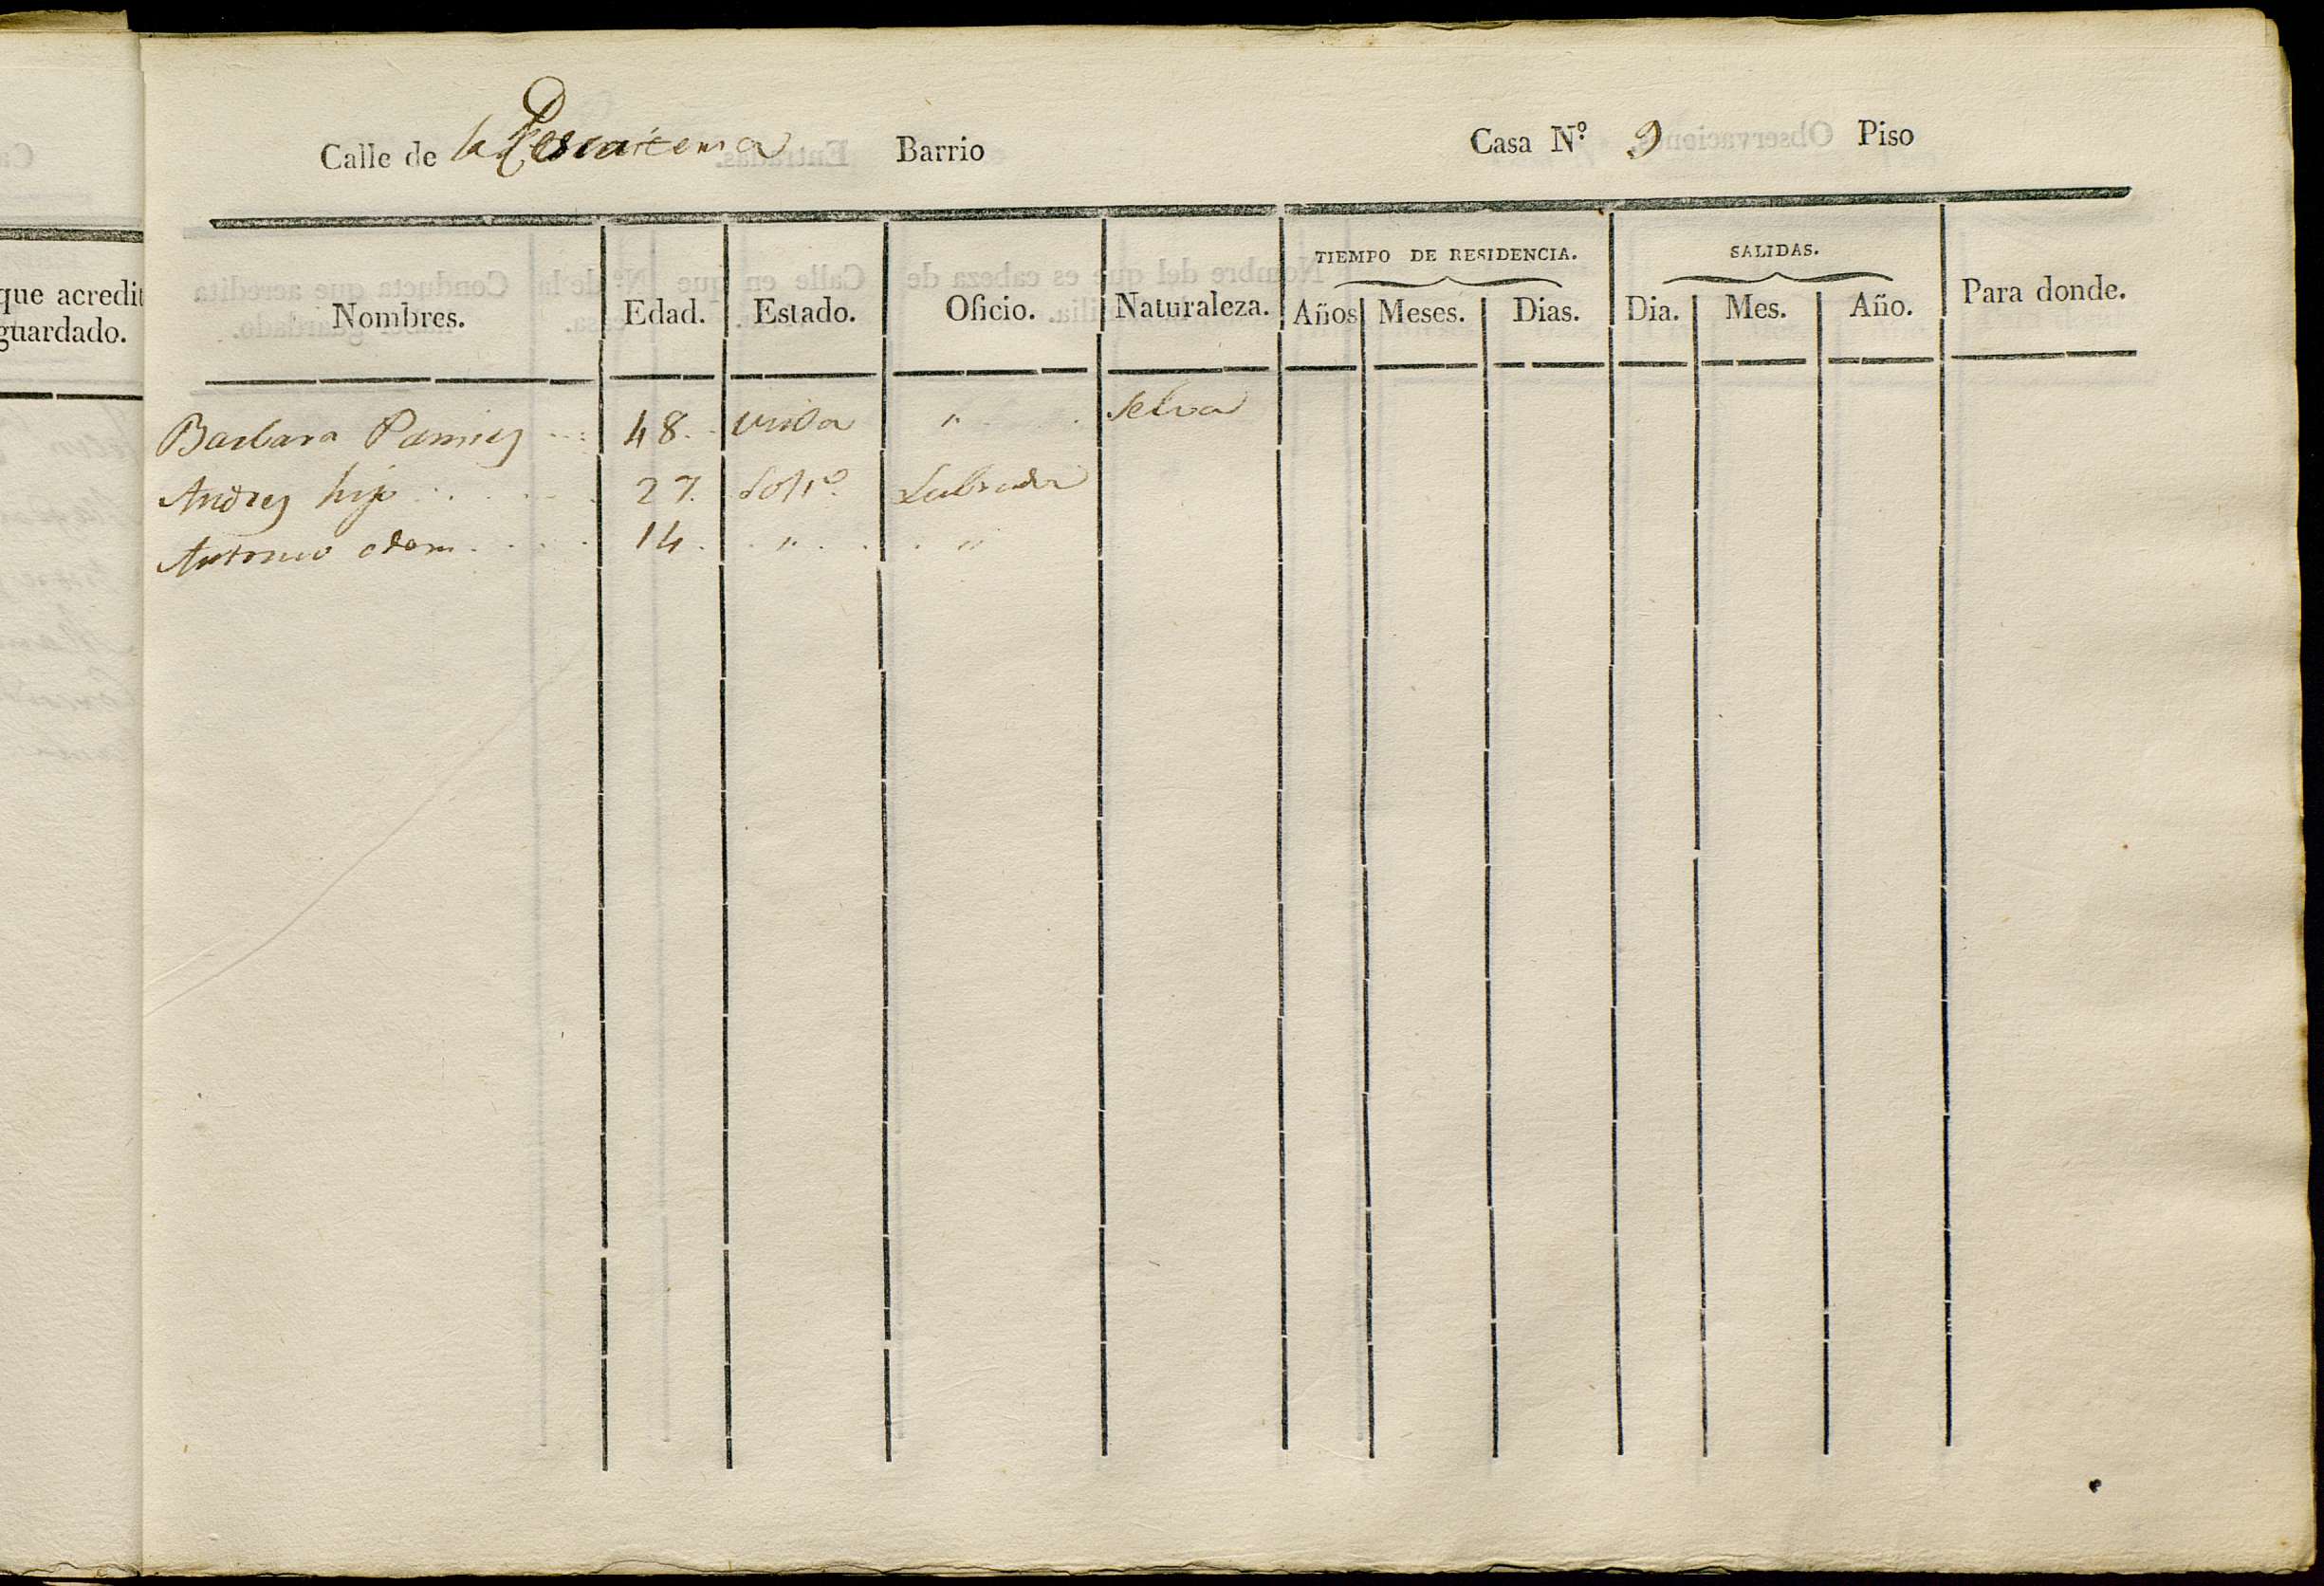 Calle de la Barrio Casa N.º 9 Piso
que acredit
guardado.
TIEMPO DE RESIDENCIA. SALIDAS.
Nombres. Edad. Estado. Oficio. Naturaleza. Años Meses. Dias. Dia. Mes. Año. Para donde.
Barbara Pamies 48. viuda " Selva
Andres hijo 27. Solt.º Labrador
Antonio idem 14. " "